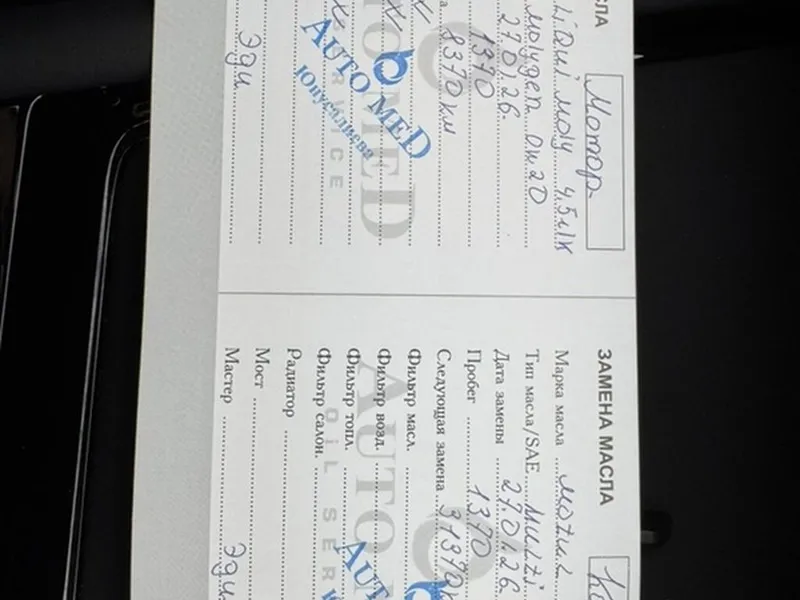 СЛА
Мотор
Liqui moly 4,5л/к
molygen 0w20
27.01.26
1370
8370 км
AUTO MED
Юнусалиева
Эди
ЗАМЕНА МАСЛА
Марка масла Motul
Тип масла/SAE Multi
Дата замены 27.01.26
Пробег 1370
Следующая замена 31370
Фильтр масл.
Фильтр возд.
Фильтр топл.
Фильтр салон.
Радиатор
Мост
Мастер Эди
AUTO
OIL SER
AUT